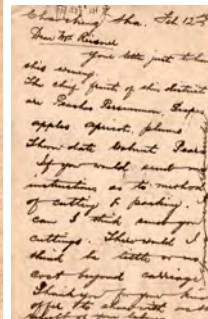 Feb 12th
Dear Mr Reisner
Your letter just to hand
this evening.
The chief fruits of this district
are Peaches Persimmon, Grapes
apples apricot, plums
Thorn date Walnut Pears
If you would send me
instructions as to method
of cutting & packing.
can I think send you
cuttings. There would I
think be little or no
cost beyond carriage.
Thank you for your kind
offer